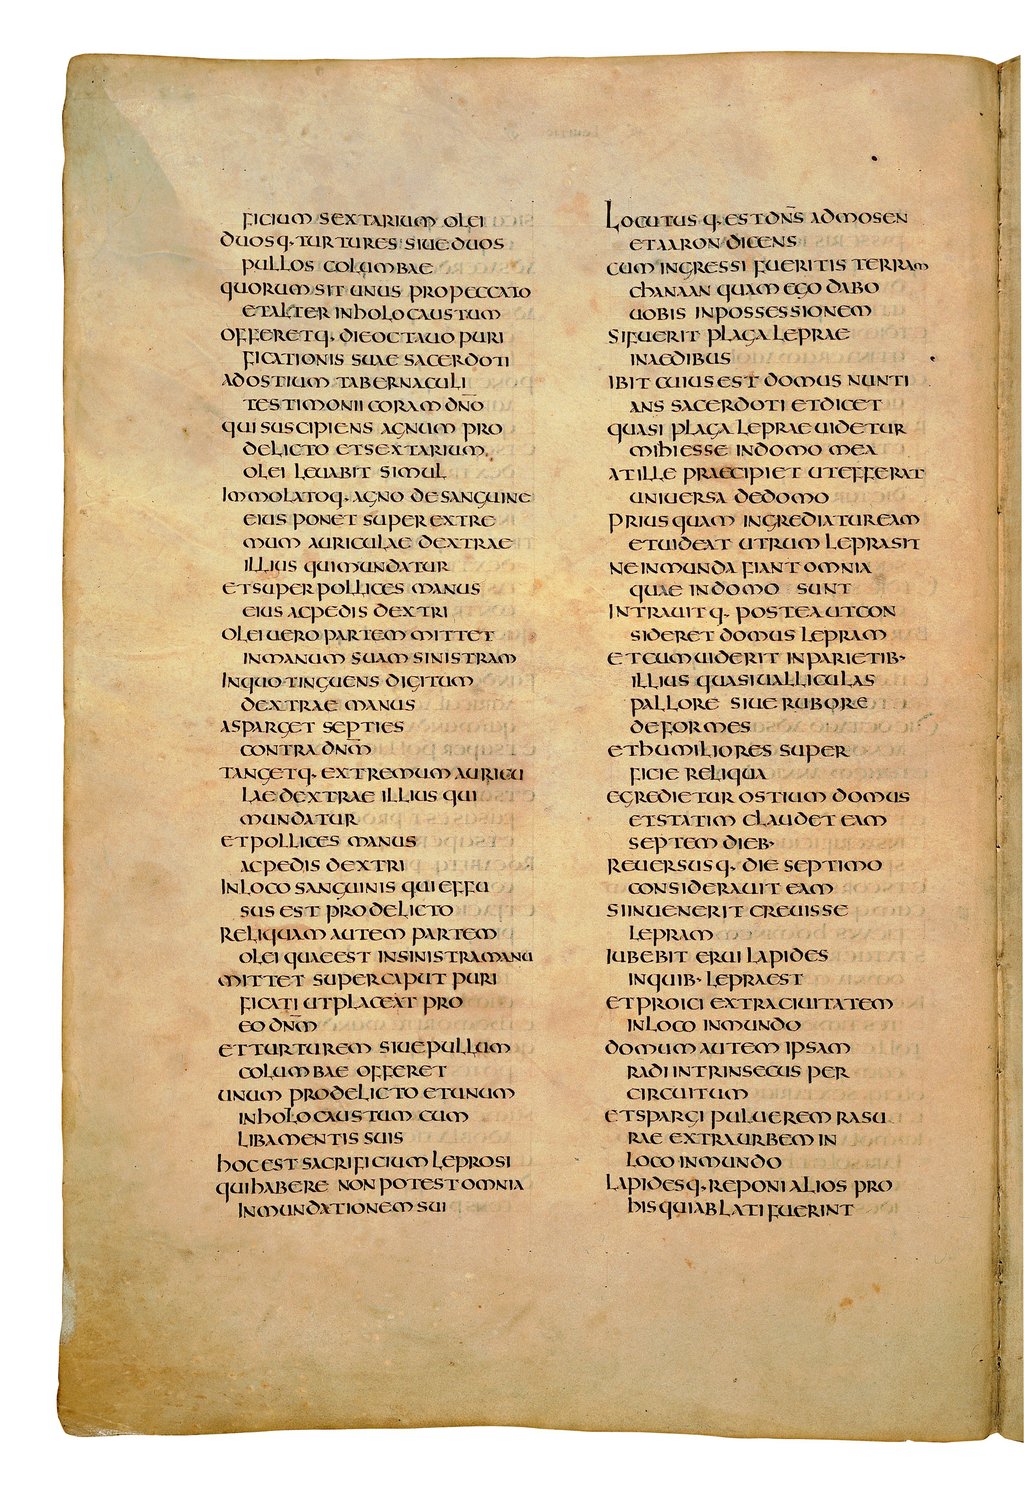 ficium sextarium olei
duosq· turtures siue duos
pullos columbae
quorum sit unus pro peccato
et alter in holocaustum
offeretq· die octauo puri
ficationis suae sacerdoti
ad ostium tabernaculi
testimonii coram dn̄o
qui suscipiens agnum pro
delicto et sextarium
olei leuabit simul
Immolatoq· agno de sanguine
eius ponet super extre
mum auriculae dextrae
illius qui mundatur
et super pollices manus
eius ac pedis dextri
olei uero partem mittet
in manum suam sinistram
In quo tinguens digitum
dextrae manus
asparget septies
contra dn̄m
tangetq· extremum auricu
lae dextrae illius qui
mundatur
et pollices manus
ac pedis dextri
In loco sanguinis qui effu
sus est pro delicto
reliquam autem partem
olei quae est in sinistra manu
mittet super caput puri
ficati ut placeat pro
eo dn̄m
et turturem siue pullum
columbae offeret
unum pro delicto et unum
in holocaustum cum
libamentis suis
hoc est sacrificium leprosi
qui habere non potest omnia
In mundationem sui
Locutus q· est dn̄s ad mosen
et aaron dicens
cum ingressi fueritis terram
chanaan quam ego dabo
uobis in possessionem
si fuerit plaga leprae
in aedibus
ibit cuius est domus nunti
ans sacerdoti et dicet
quasi plaga leprae uidetur
mihi esse in domo mea
at ille praecipiet ut efferat
uniuersa de domo
priusquam ingrediatur eam
et uideat utrum lepra sit
ne inmunda fiant omnia
quae in domo sunt
Intrauitq· postea ut con
sideret domus lepram
et cum uiderit in parietib·
illius quasi ualliculas
pallore siue rubore
deformes
et humiliores super
ficie reliqua
egredietur ostium domus
et statim claudet eam
septem dieb·
reuersusq· die septimo
considerauit eam
si inuenerit creuisse
lepram
Iubebit erui lapides
in quib· lepra est
et proici extra ciuitatem
in loco inmundo
domum autem ipsam
radi intrinsecus per
circuitum
et spargi puluerem rasu
rae extra urbem in
loco inmundo
lapidesq· reponi alios pro
his qui ablati fuerint